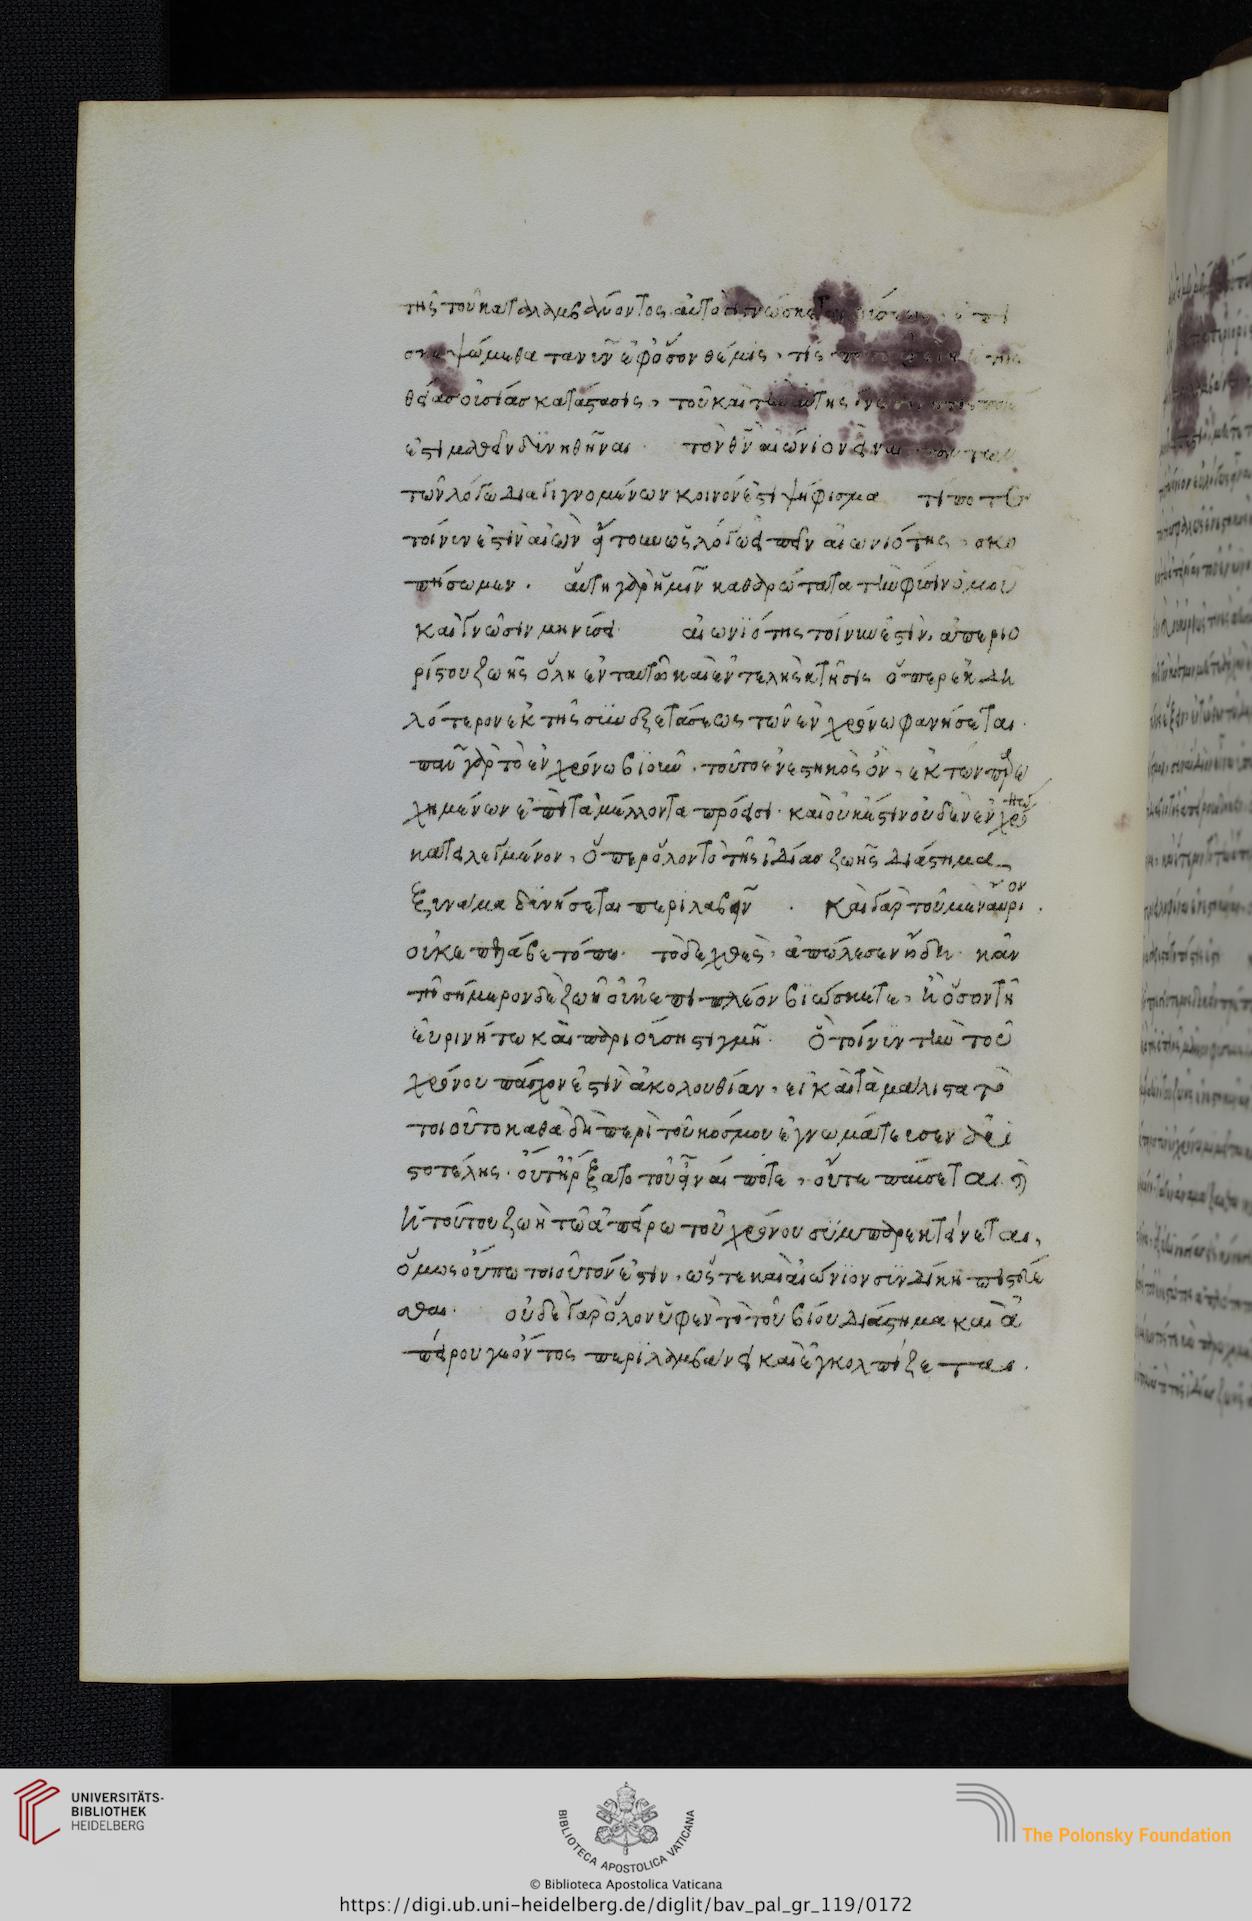 τῆς τοῦ καταλαμβάνοντος αὐτὸ
σκεψώμεθα τανῦν ἐφόσον θέμις, τίς
θείας οὐσίας κατάστασις, τοῦ καὶ τὴν αὐτῆς
ἐστι μαθεῖν δυνηθῆναι. τὸν θν αἰώνιον εἶναι
τῶν λόγω διαγιγνομένων κοινόν ἐστι ψήφισμα τί ποτε
τοίνυν ἐστὶν αἰὼν ἢ τοκυως λόγω εἰπεῖν αἰωνιότης, σκο
πήσωμεν. αὕτη γὰρ ἡμῖν καθαρώτατα τὴν φύσιν ὁμοῦ
καὶ γνῶσιν μηνύσει αἰωνιότης τοίνυν ἐστὶν, ἀπεριο
ρίστου ζωῆς ὅλη ἐνταυτῶ καὶ ἐντελὴς κτῆσις ὅπερ ἐκ δη
λότερον ἐκ τῆς συνεξετάσεως τῶν ἐν χρόνω φανήσεται.
πᾶν γὰρ τὸ ἐν χρόνω βιοῦν, τοῦτο ἐνεστηκὸς ὂν, ἐκ τῶν παρω
χημένων ἐπὶ τὰ μέλλοντα πρόεισι. καὶ οὐκ ἔστιν οὐδὲν ἐν χρό
κατειλεγμένον, ὅπερ ὅλον τὸ τῆς ἰδίας ζωῆς διάστημα
ξυνάμα δυνήσεται περιλαβεῖν. καὶ γὰρ τοῦ μὲν αὔριον
οὐκ ἐπελάβετό πω. τὸ δὲ χθὲς, ἀπώλεσεν ἤδη. κἂν
τῆ σήμερον δὲ ζωῆ οὐκ ἐπιπλέον βιώσκετε, ἢ ὅσον τῆ
εὐκινήτω καὶ παριούση στιγμῆ. ὃ τοίνυν τὴν τοῦ
χρόνου πάσχον ἐστὶν ἀκολουθίαν, εἰ καὶ τὰ μάλιστα τὸ
τοιοῦτο καθὰ δὴ περὶ τοῦ κόσμου ἐγνωμάτευσεν ἀρι
στοτέλης. οὔτ' ἤρξατο τοῦ εἶναί ποτε, οὔτε παύσεται,
ἡ τούτου ζωὴ τῶ ἀπείρω τοῦ χρόνου συμπαρεκτείνεται,
ὅμως οὔπω τοιοῦτόν ἐστιν, ὥστε καὶ αἰώνιον σὺν δίκη πιστεύε
σθαι. οὐδὲ γὰρ ὅλον ὑφὲν τὸ τοῦ βίου διάστημα καὶ ἀ
πείρου γε ὄντος περιλαμβάνει καὶ ἐγκολπίζεται.
UNIVERSITÄTS-
BIBLIOTHEK
HEIDELBERG
BIBLIOTECA APOSTOLICA VATICANA
The Polonsky Foundation
© Biblioteca Apostolica Vaticana
https://digi.ub.uni-heidelberg.de/diglit/bav_pal_gr_119/0172